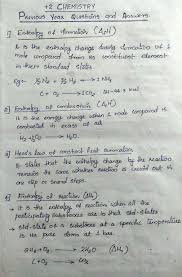 +2 CHEMISTRY
Previous Year Questions and Answers
1) Enthalpy of formation (ΔfH)
It is the enthalpy change during formation of 1
mole compound from its constituent element
in their standard states.
Eg:- ½N₂ + 3/2 H₂ → 1 NH₃
C + O₂ → 1 CO₂
2) Enthalpy of combustion (ΔcH)
The enthalpy change when 1 mole compound is
combusted in excess of air
H₂ + ½O₂ → H₂O.
3) Hess's law of constant heat summation
It states that the enthalpy change by the reaction
remains the same whether reaction is carried out in
one step or several steps.
4) Enthalpy of reaction (ΔHr)
→ It is the enthalpy of reaction when all the
participating substances are in their std-states
→ std-state of a substance at a specific temperature
is its pure form at 1 bar.
2H₂ + O₂ → 2H₂O (ΔHr)
C + O₂ → CO₂